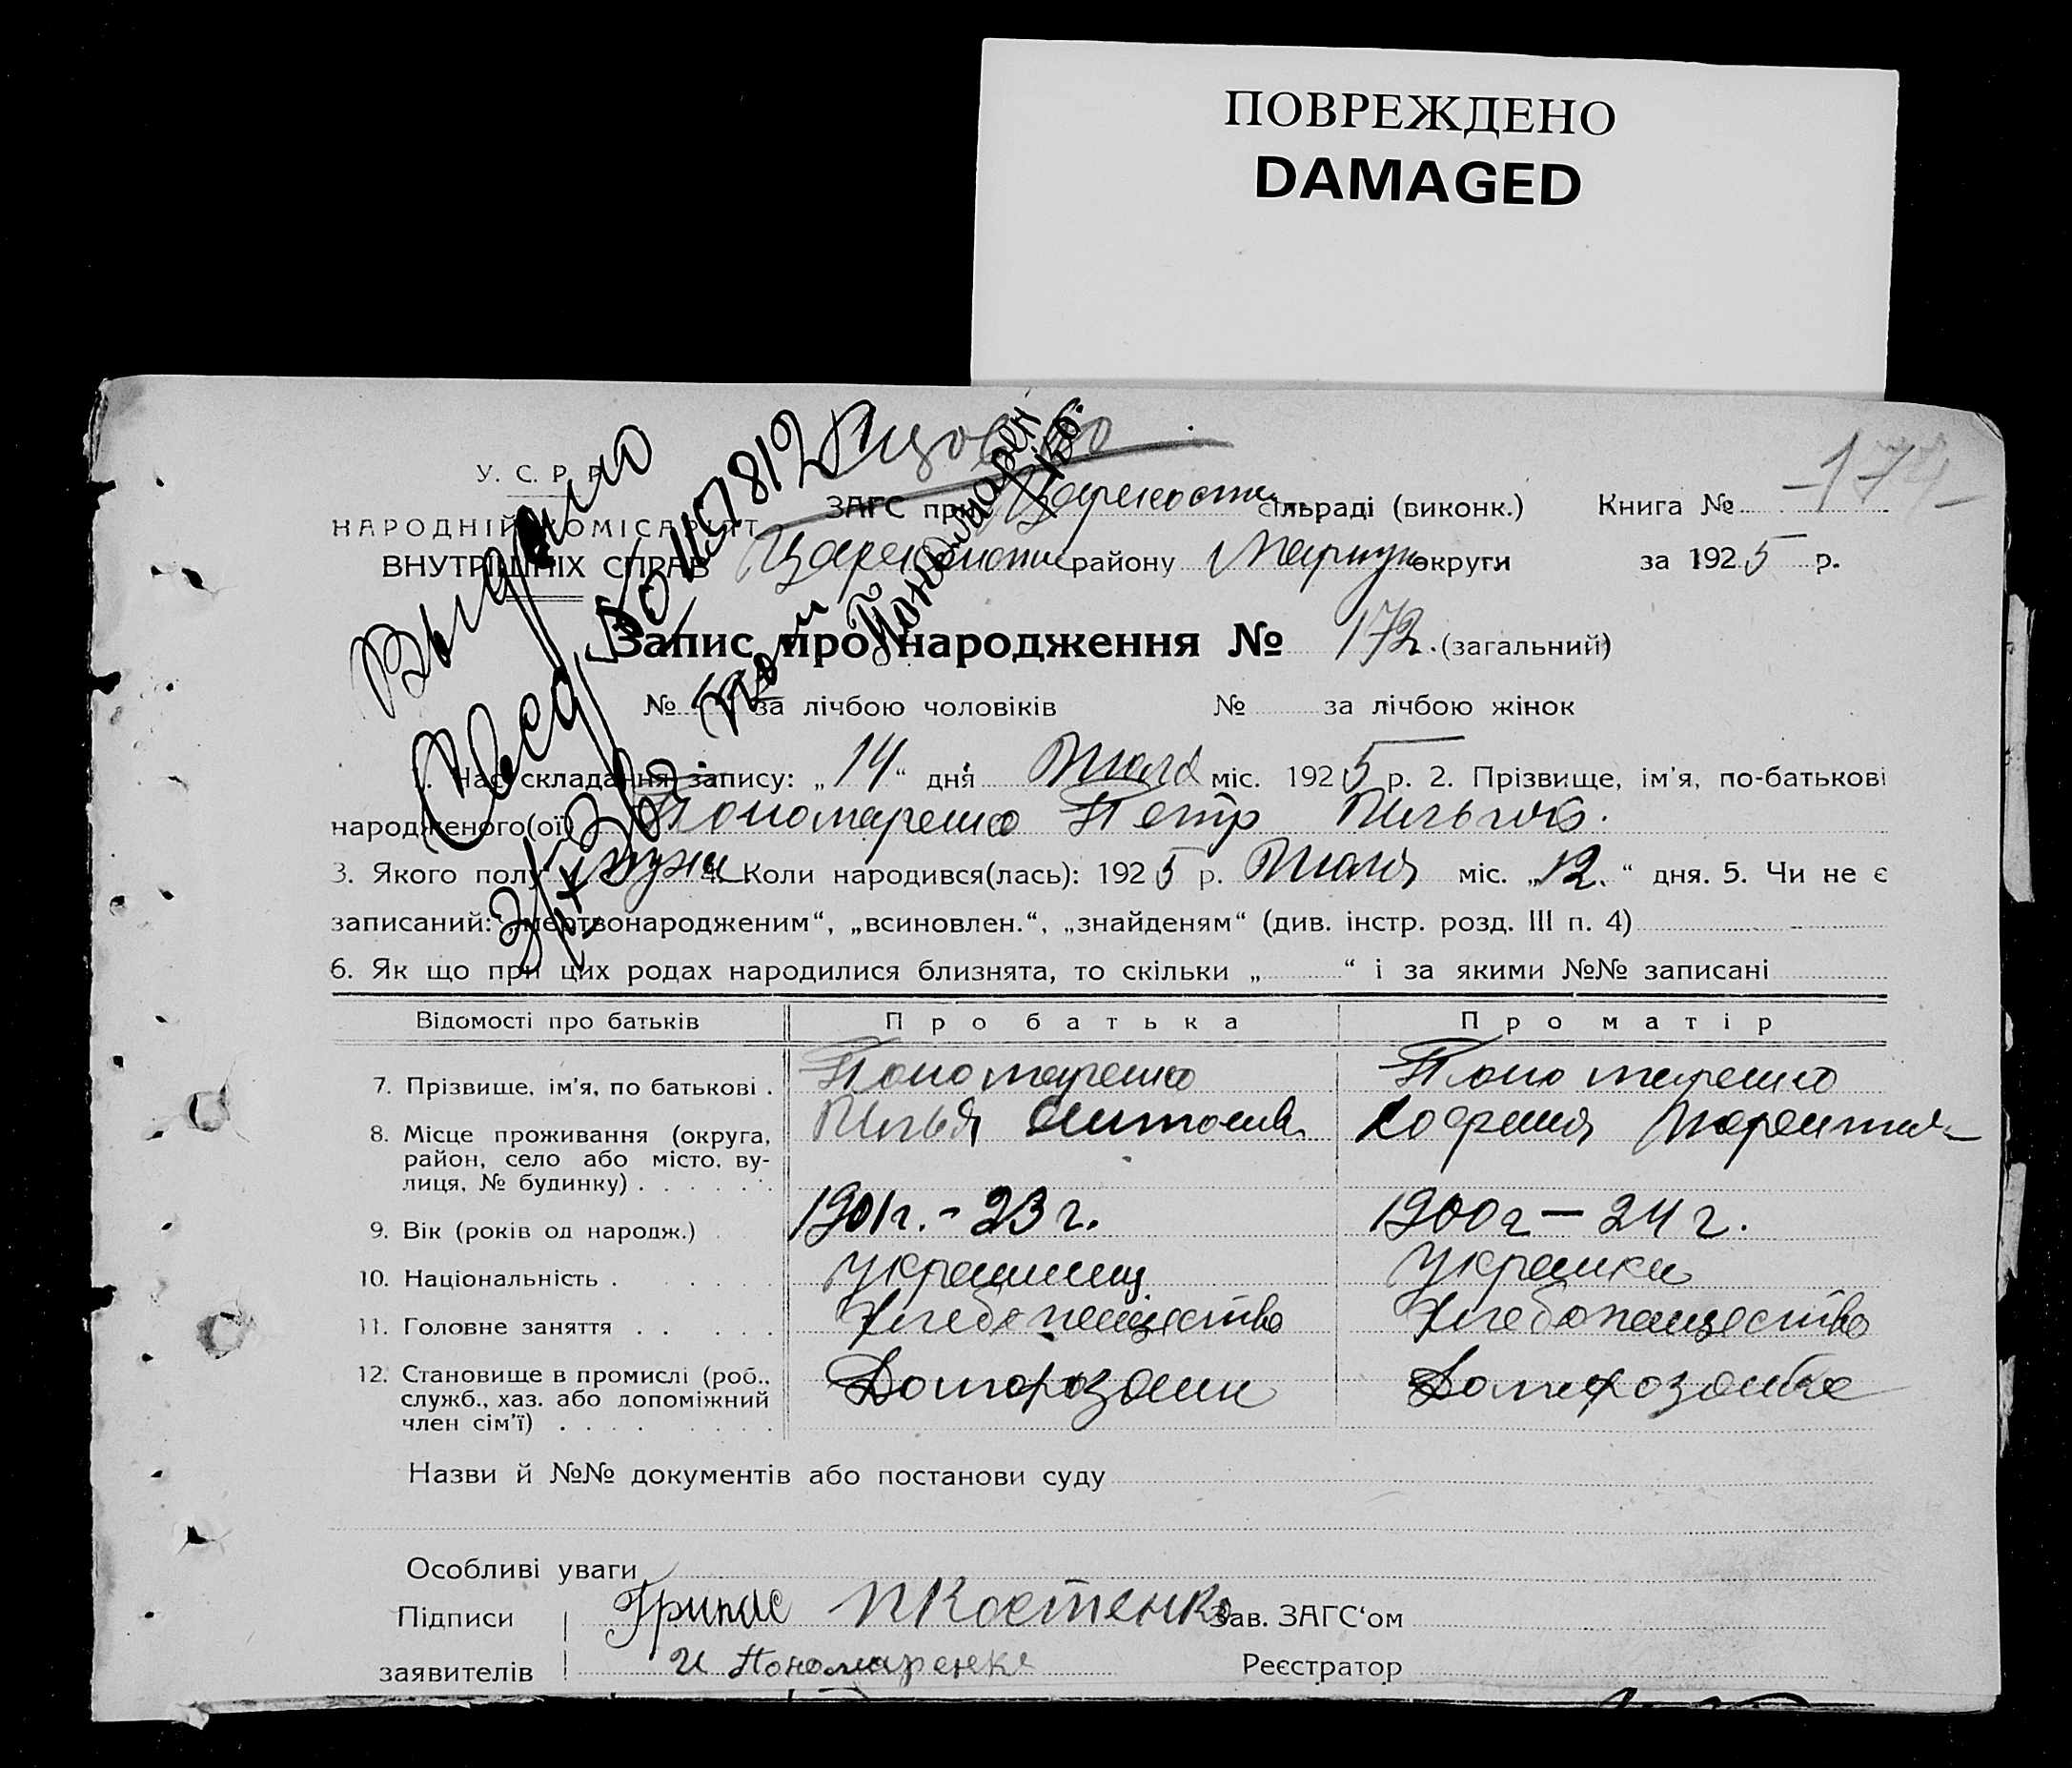 ПОВРЕЖДЕНО
DAMAGED
У. С. Р. Р.
НАРОДНІЙ КОМІСАРІЯТ
ВНУТРІШНІХ СПРАВ
ЗАГС при сільраді (виконк.) Книга №
району Мариуп округи за 1925 р.
Выдано
Свед
Пономарен
ко.
Запис про народження № 172. (загальний)
№ за лічбою чоловіків № за лічбою жінок
1. Час складання запису: „14“ дня Июля міс. 1925 р. 2. Прізвище, ім'я, по-батькові
народженого(ої) Пономаренко Петр Ильич.
3. Якого полу муж 4. Коли народився(лась): 1925 р. Июля міс. „12.“ дня. 5. Чи не є
записаний: „мертвонародженим“, „всиновлен.“, „знайденям“ (див. інстр. розд. III п. 4)
6. Як що при цих родах народилися близнята, то скільки „ “ і за якими №№ записані
Відомості про батьків Про батька Про матір
7. Прізвище, ім'я, по батькові . Пономаренко Пономаренко
8. Місце проживання (округа, район, село або місто, вулиця, № будинку) . . . . . . Илья Антонов
9. Вік (років од народж.) . 1901г. - 23 г. 1900г - 24 г.
10. Національність . . . . . украинец украинка
11. Головне заняття . . . . . Хлебопашество Хлебопашество
12. Становище в промислі (роб., служб., хаз. або допоміжний член сім'ї) . . . . . . . . Домохозяин Домохозяйка
Назви й №№ документів або постанови суду
Особливі уваги
Підписи Костенко Зав. ЗАГС'ом
заявителів и Пономаренко Реєстратор